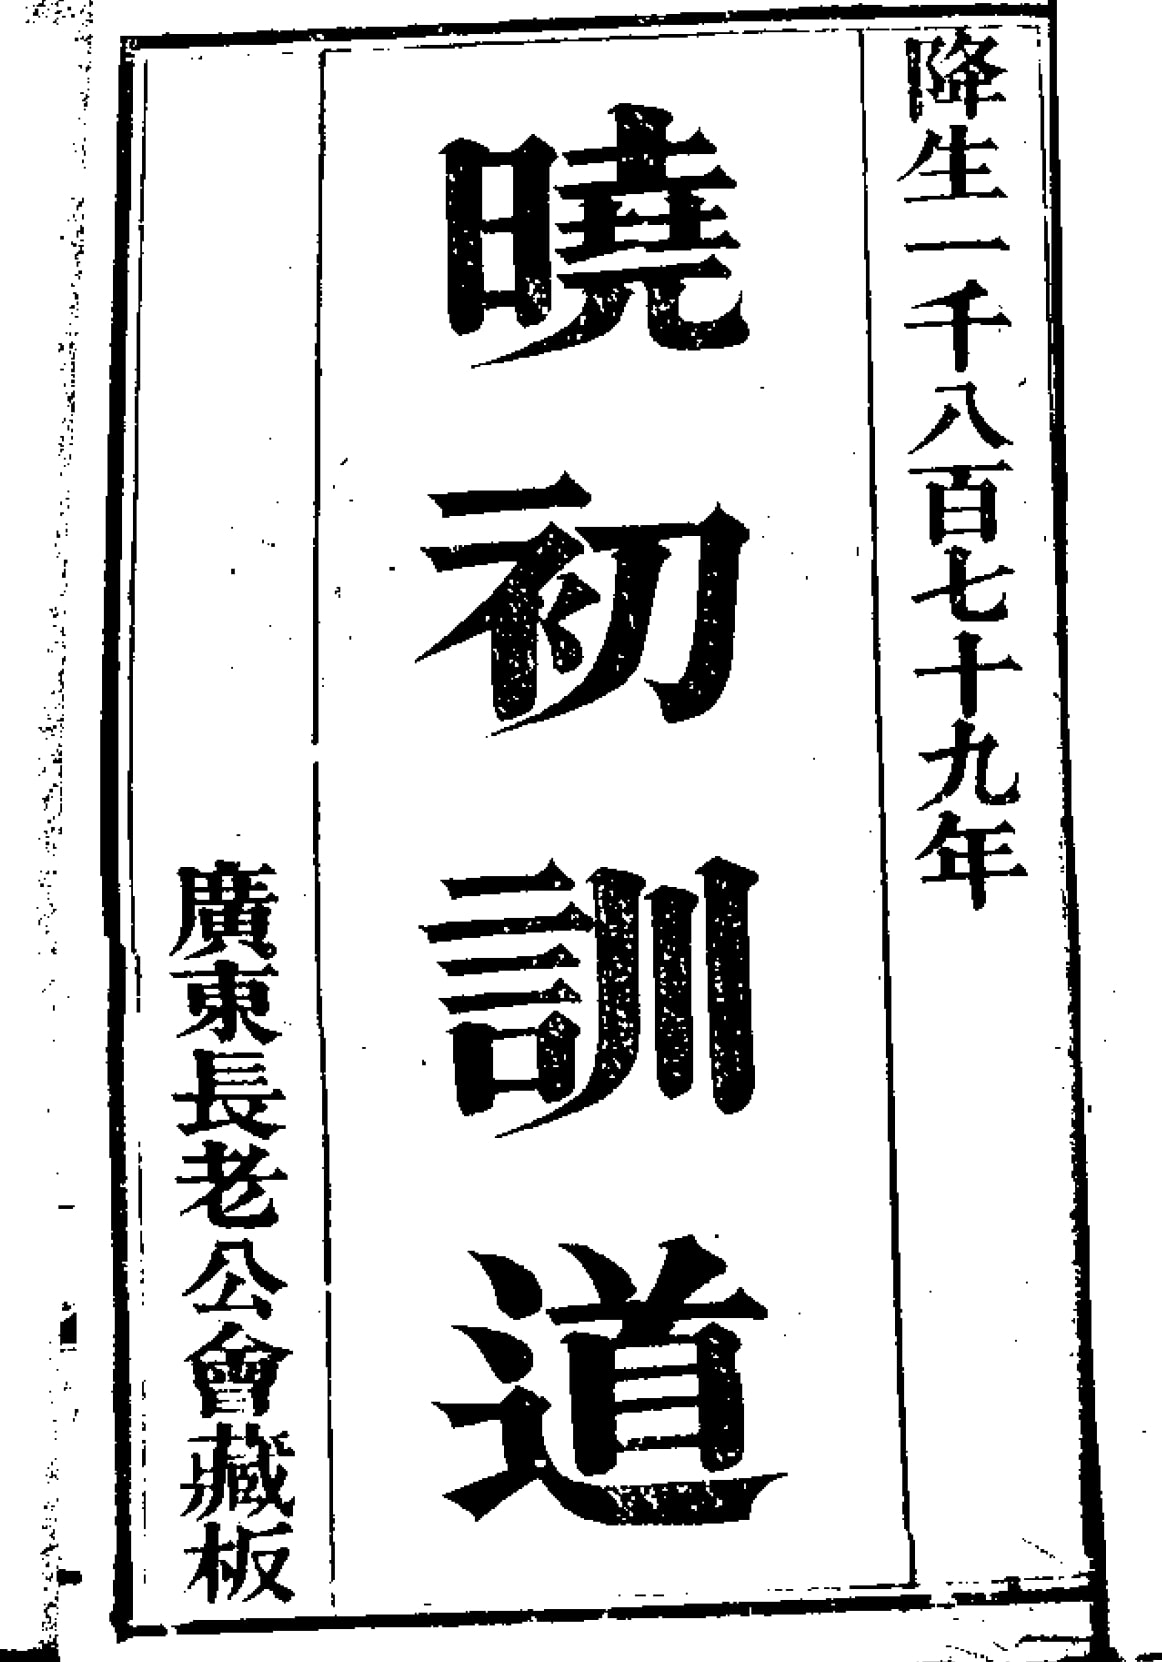 降生一千八百七十九年
曉初訓道
廣東長老公會藏板